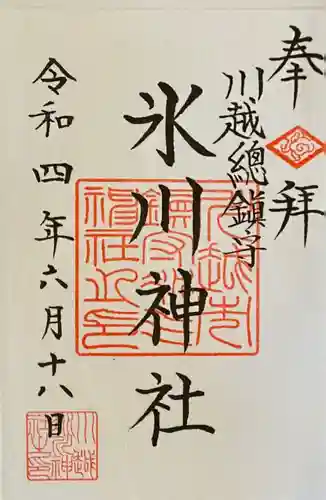 奉拜
川越總鎮守
氷川神社
令和四年六月十八日